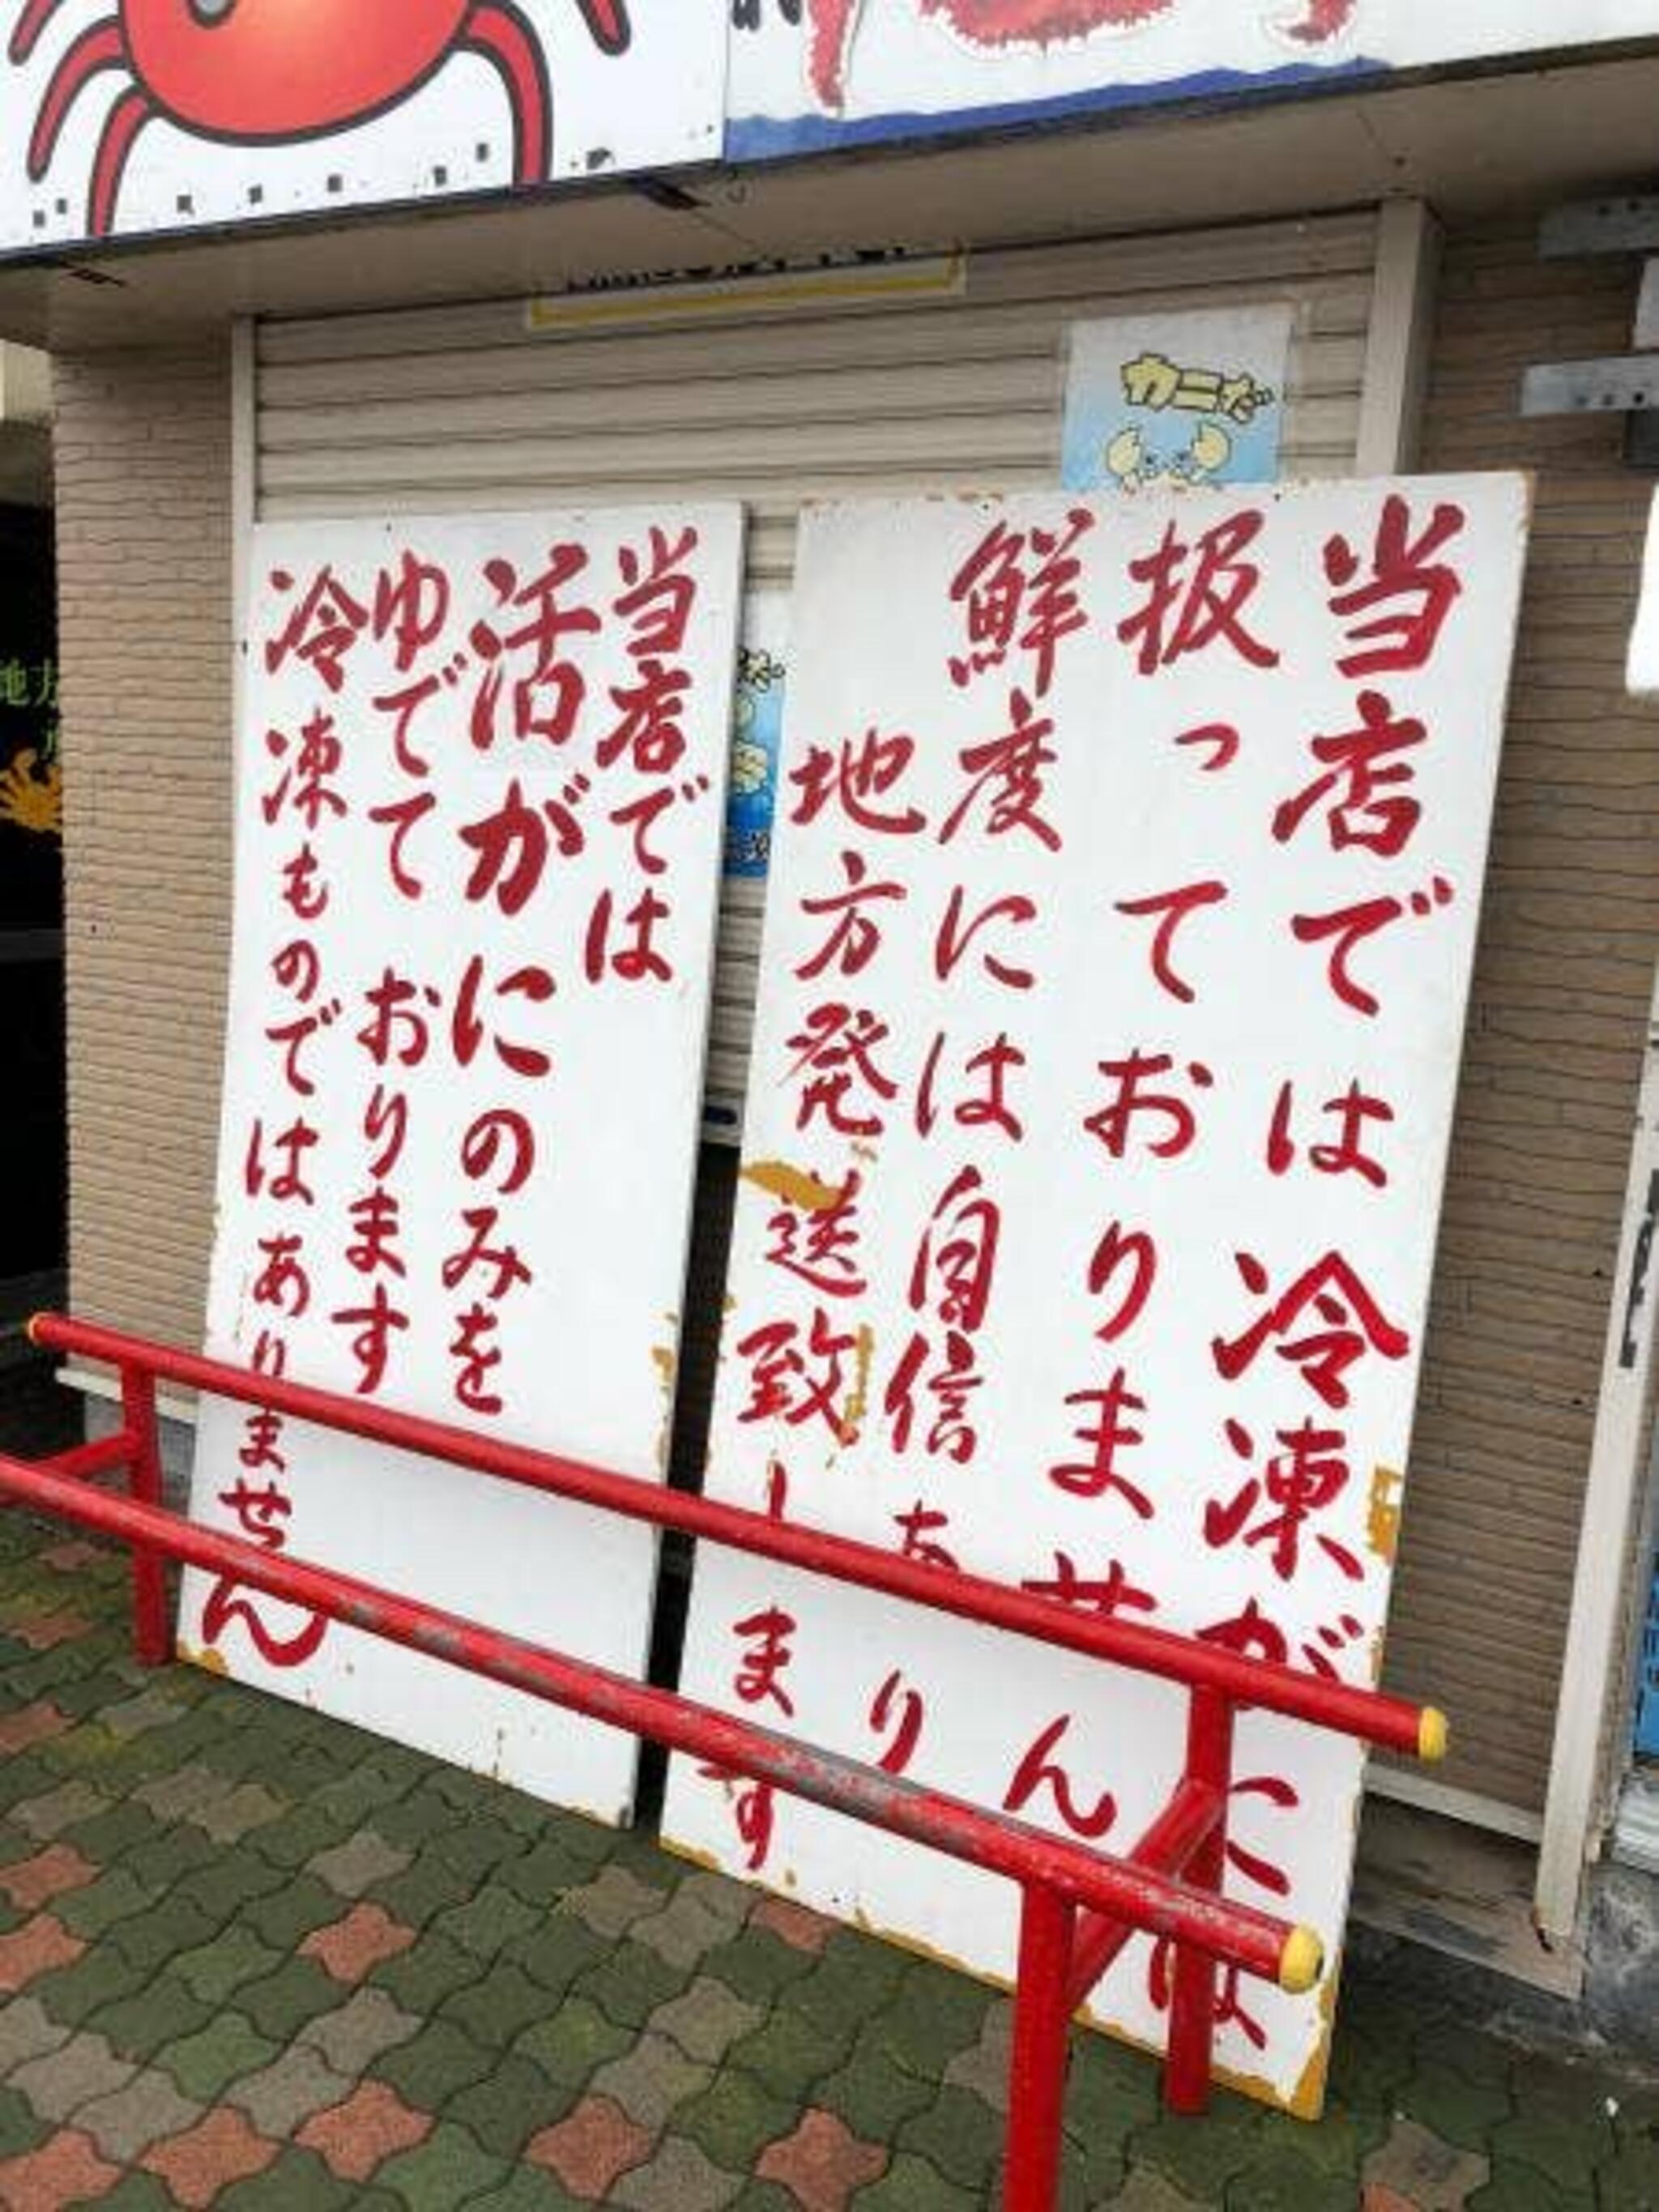 カニだ
当店では冷凍がには
扱っておりません
鮮度には自信あり
地方発送致します
当店では
活がにのみを
ゆでております
冷凍ものではありません
地方